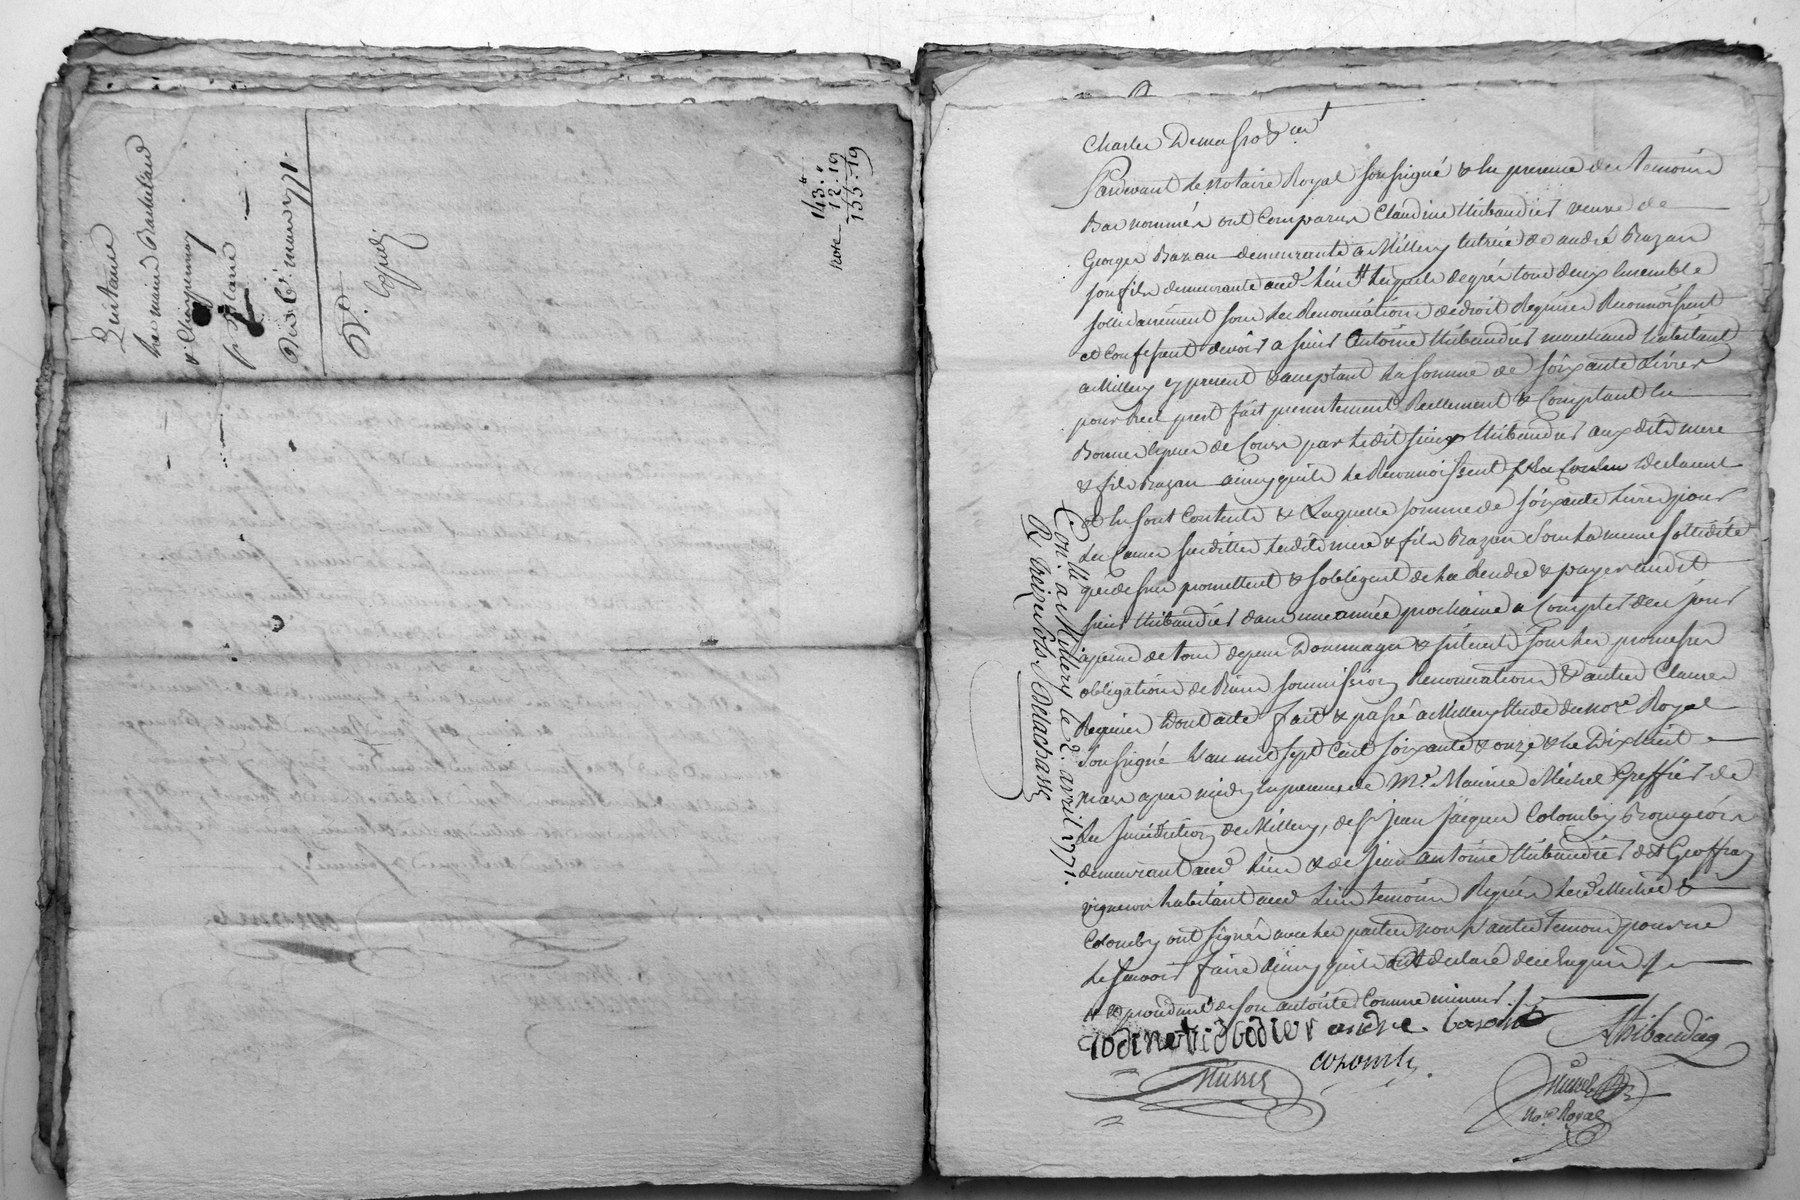 Quittance
& Champenois
Du 6e. mars 1771.
Vo.
143 . "
12 . 19
155 . 19
Pardevant le notaire Royal soussigné & en presence des temoins
Bas nommés ont Comparus Claudine thibaudier veuve de
George Bazan demeurante a Millery autorisée de andré Bazan
son fils demeurante aud. lieu # lesquels de grés tous deux Ensemble
sollidairement sous les Renonciations de droit Requises Reconnoissent
et Confessent devoir a sieur Antoine thibaudier marchand habitant
a Millery y present & acceptant la somme de soixante Livres
pour pret fait presentement Reellement & Comptant En
Bonnes Especes de Cours par le dit sieur thibaudier aux dits mere
& fils Bazan ainsy quils le Reconnoissent declarent
et En sont Contents & Laquelle somme de soixante Livres pour
les Causes susdittes lesdits mere & fils Bazan sous la meme sollidité
que dessus promettent & sobligent de la Rendre & payer audit
sieur thibaudier dans une année prochaine a Compter de ce jour
a peine de tous depens Dommages & interets sous les promesses
obligations de Biens soumissions Renonciations & autres Clauses
Requises Dont acte fait & passé a Millery Etude du nore. Royal
Soussigné L'an mil sept Cent soixante & onze & le Dix huit
mars apres midy En presence de Me. Maurice Michel Greffier de
la jurisdiction de Millery, de sr. jean jacques Colomby Bourgeois
demeurant aud. lieu & de jean antoine thibaudier dit Geoffray
vigneron habitant aud. Lieu temoins Requis led. Michel &
Colomby ont signés avec les parties non L'autre temoin pour ne
le scavoir faire ainsy quils ont declaré de ce Enquis
# & procedant de son autorité Comme mineur
andre basan
Thibaudier
colomby
Michel
nore. Royal
Con. lé a Millery le 2. avril 1771.
R. treize sols. Delachasse